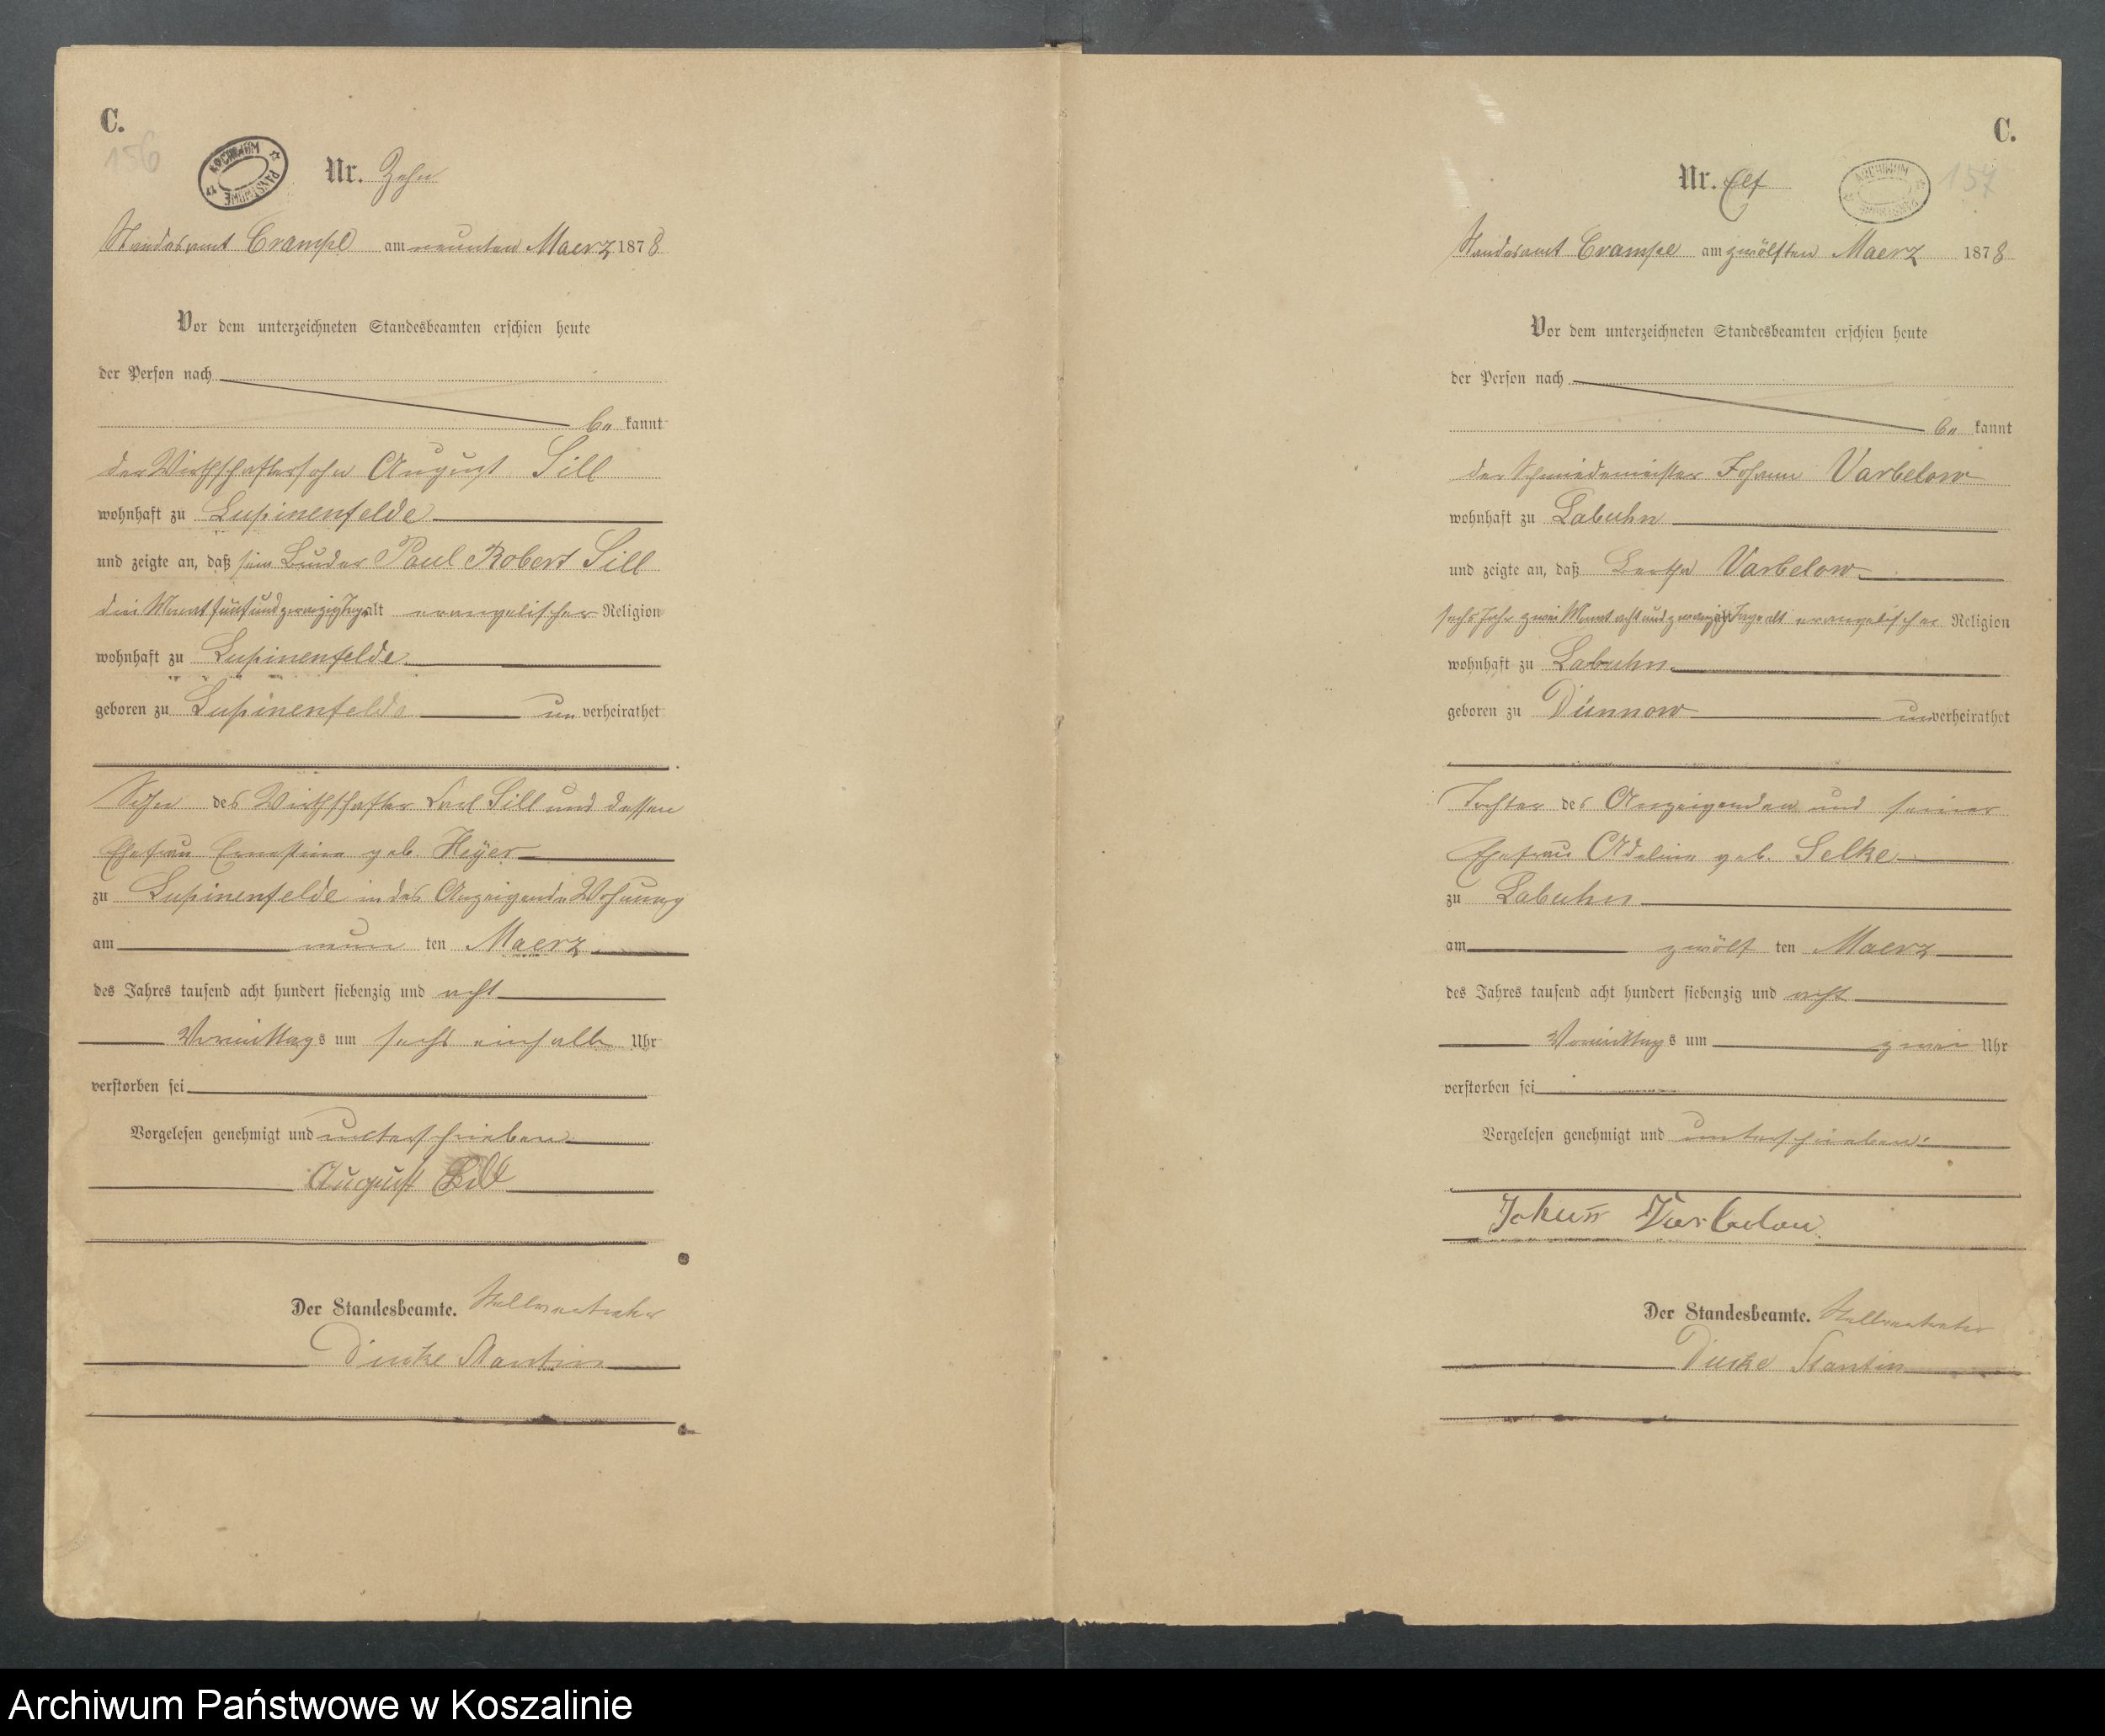 C.
156
ARCHIWUM PAŃSTWOWE
Nr. Zehn
Standesamt Crampe am neunten Maerz 1878
Vor dem unterzeichneten Standesbeamten erschien heute
der Person nach
be kannt
der Wirthschaftersohn August Sill
wohnhaft zu Lupinenfelde
und zeigte an, daß sein Bruder Paul Robert Sill
drei Monat fünf und zwanzig Tage alt evangelischer Religion
wohnhaft zu Lupinenfelde
geboren zu Lupinenfelde un verheirathet
Sohn des Wirthschafter Carl Sill und dessen
Ehefrau Ernestine geb. Heyer
zu Lupinenfelde in des Anzeigende Wohnung
am neun ten Maerz
des Jahres tausend acht hundert siebenzig und acht
Vormittags um sechs einhalb Uhr
verstorben sei
Vorgelesen genehmigt und unterschrieben
August Sill
Der Standesbeamte. Stellvertreter
C.
157
ARCHIWUM PAŃSTWOWE
Nr. Elf
Standesamt Crampe am zwölften Maerz 1878
Vor dem unterzeichneten Standesbeamten erschien heute
der Person nach
be kannt
der Schmiedemeister Johann Varbelow
wohnhaft zu Labuhn
und zeigte an, daß Bertha Varbelow
sechs Jahr zwei Monat acht und zwanzig Tage alt evangelischer Religion
wohnhaft zu Labuhn
geboren zu Dünnow unverheirathet
Tochter des Anzeigenden und seiner
Ehefrau Adeline geb. Selke
zu Labuhn
am zwölf ten Maerz
des Jahres tausend acht hundert siebenzig und acht
Vormittags um zwei Uhr
verstorben sei
Vorgelesen genehmigt und unterschrieben.
Johann Varbelow
Der Standesbeamte. Stellvertreter
Archiwum Państwowe w Koszalinie